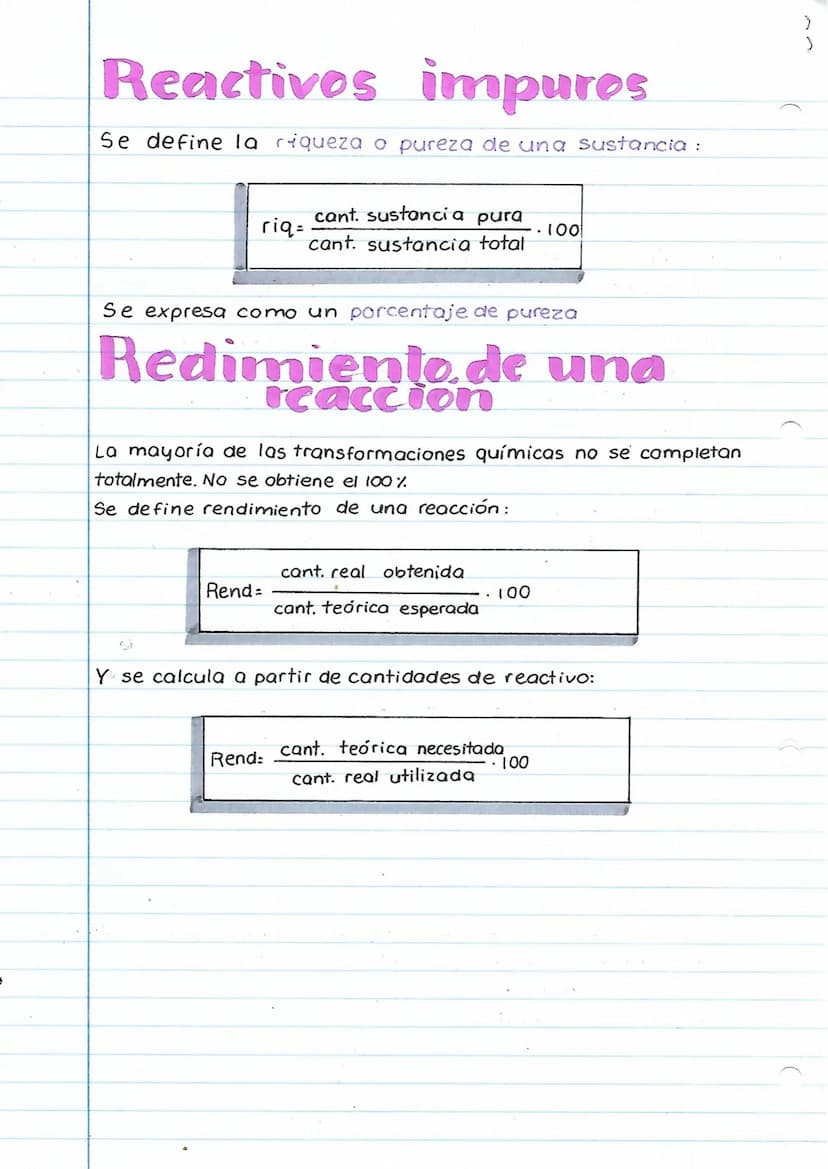 Reactivos impuros
Se define la riqueza o pureza de una sustancia :
riq= cant. sustancia pura / cant. sustancia total · 100
Se expresa como un porcentaje de pureza
Redimiento de una
reaccion
La mayoría de las transformaciones químicas no se completan
totalmente. No se obtiene el 100 %
Se define rendimiento de una reacción:
Rend= cant. real obtenida / cant. teórica esperada · 100
Y se calcula a partir de cantidades de reactivo:
Rend= cant. teórica necesitada / cant. real utilizada · 100